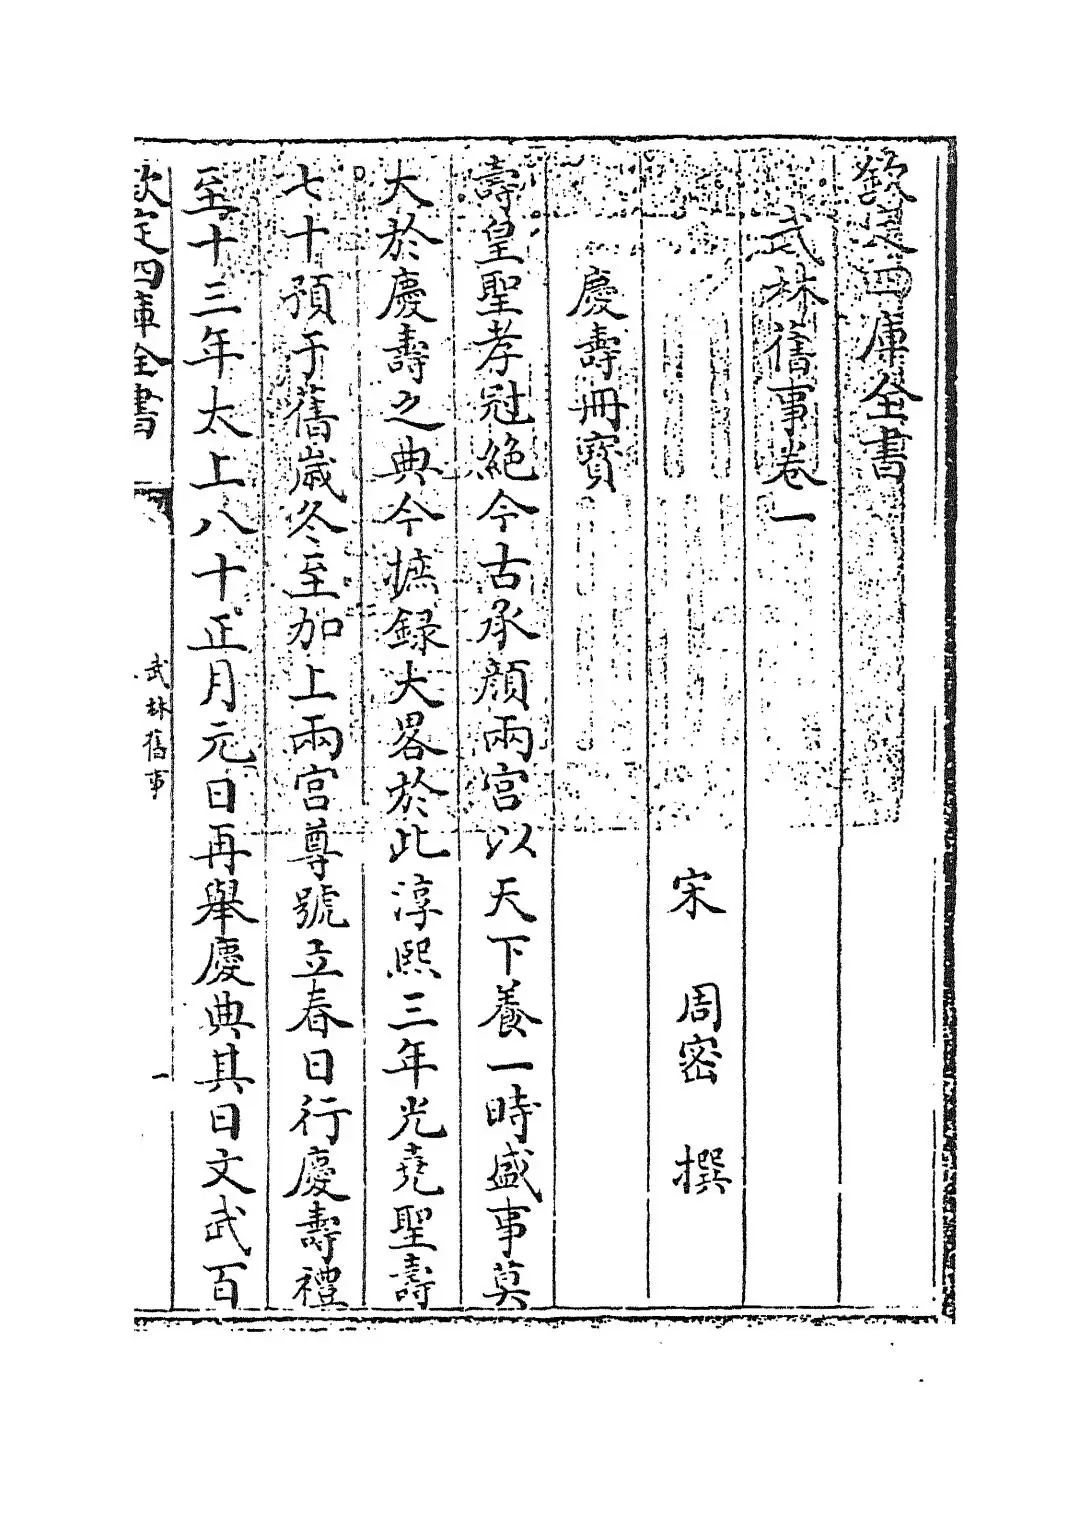 欽定四庫全書
武林舊事卷一
宋 周密 撰
慶壽冊寳
壽皇聖孝冠絶今古承顔兩宫以天下養一時盛事莫
大於慶壽之典今摭録大畧於此淳熙三年光堯聖壽
七十預于舊歲冬至加上兩宫尊號立春日行慶壽禮
至十三年太上八十正月元日再舉慶典其日文武百
欽定四庫全書
武林舊事
一